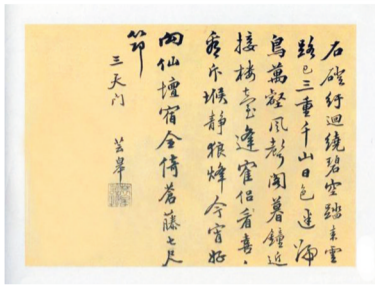 石磴紆迴繞碧空踏来雲
路已三重千山日色迷歸
鳥萬壑風聲閣暮鐘近
接樓臺逢寉侶看喜
斥堠靜狼烽今宵好
向仙壇宿全倚蒼藤七尺
筇
三天门
芸皋